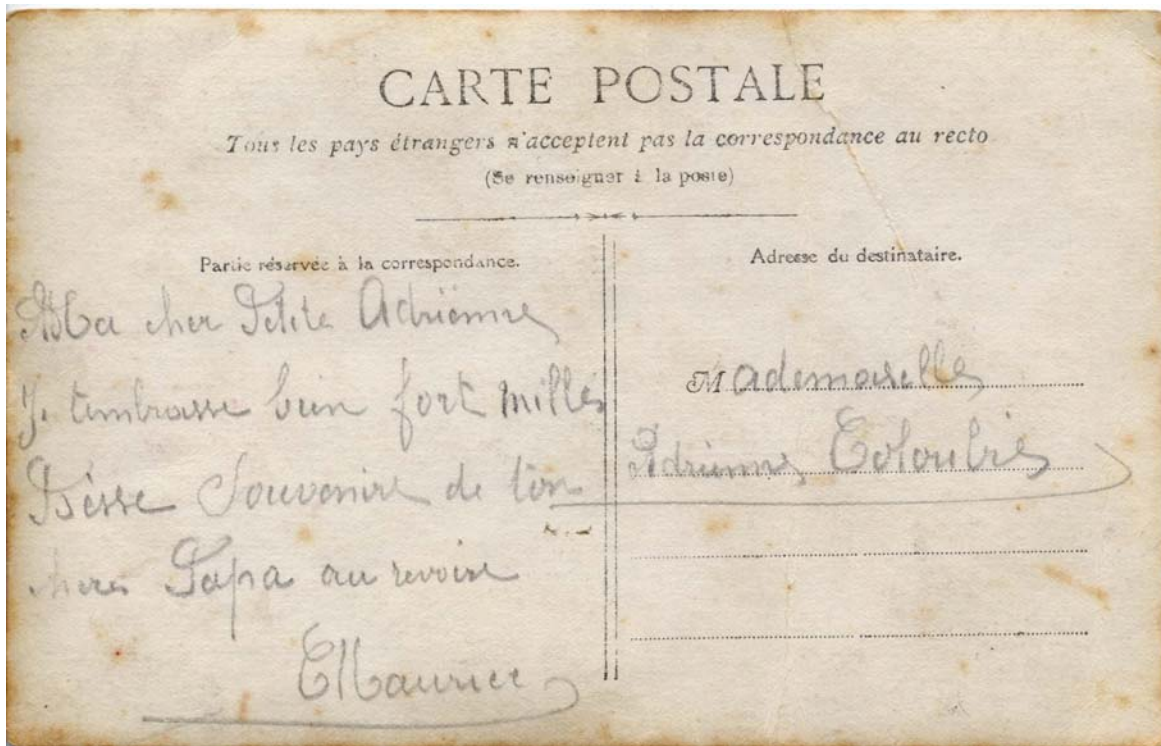 CARTE POSTALE
Tous les pays étrangers n'acceptent pas la correspondance au recto
(Se renseigner à la poste)
Partie réservée à la correspondance.
Ma cher Petite Adrienne
Je tembrasse bien fort milles
Bésse Souvenire de ton
Papa au revoire
Maurice
Adresse du destinataire.
Mademoiselle
Adrienne